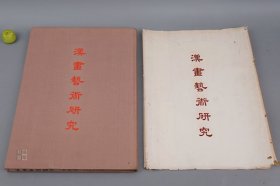 漢畫藝術研究
漢畫藝術研究